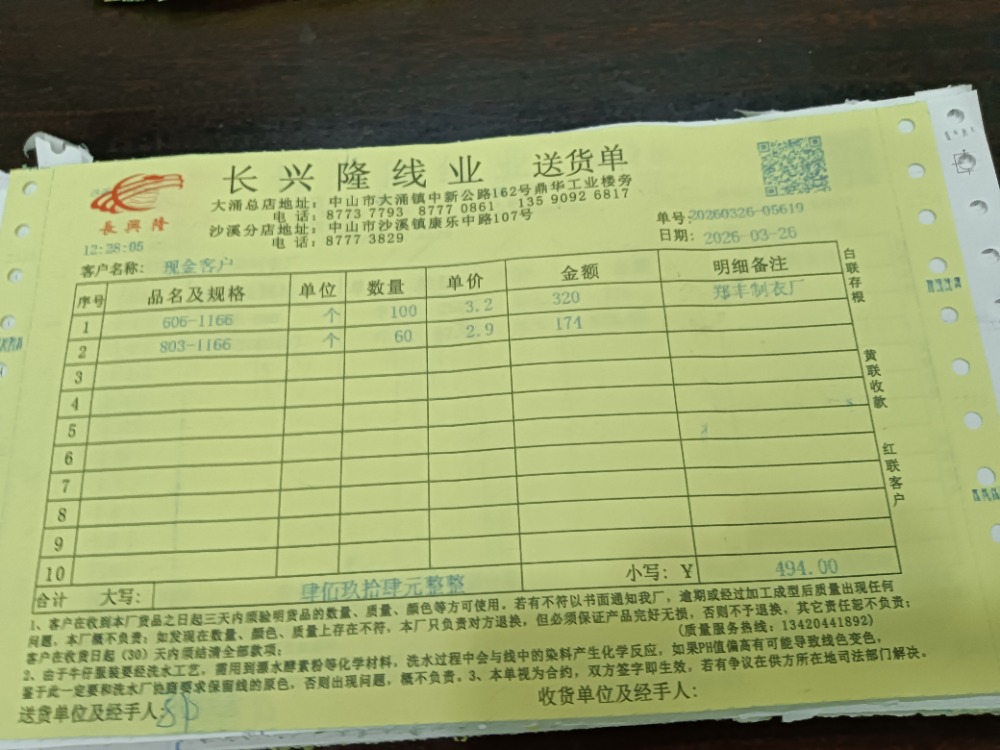 长兴隆线业 送货单
長興隆
大涌总店地址：中山市大涌镇中新公路162号鼎华工业楼旁
电话：8773 7793 8777 0861 135 9092 6817
沙溪分店地址：中山市沙溪镇康乐中路107号
电话：8777 3829
单号:20260326-05619
日期: 2026-03-26
12:28:05
客户名称: 现金客户
序号 品名及规格 单位 数量 单价 金额 明细备注
1 606-1166 个 100 3.2 320 郑丰制衣厂
2 803-1166 个 60 2.9 174
3
4
5
6
7
8
9
10
合计 大写: 肆佰玖拾肆元整整 小写: ￥ 494.00
白联存根
黄联收款
红联客户
1、客户在收到本厂货品之日起三天内须验明货品的数量、质量、颜色等方可使用。若有不符以书面通知我厂，逾期或经过加工成型后质量出现任何
问题，本厂概不负责；如发现在数量、颜色、质量上存在不符，本厂只负责对方退换，但必须保证产品完好无损，否则不予退换，其它责任恕不负责；
客户在收货日起（30）天内须结清全部款项； (质量服务热线：13420441892)
2、由于牛仔服装要经洗水工艺，需用到漂水酵素粉等化学材料，洗水过程中会与线中的染料产生化学反应，如果PH值偏高有可能导致线色变色，
鉴于此一定要和洗水厂协商要求保留线的原色，否则出现问题，概不负责。3、本单视为合约，双方签字即生效，若有争议在供方所在地司法部门解决。
送货单位及经手人: 收货单位及经手人: